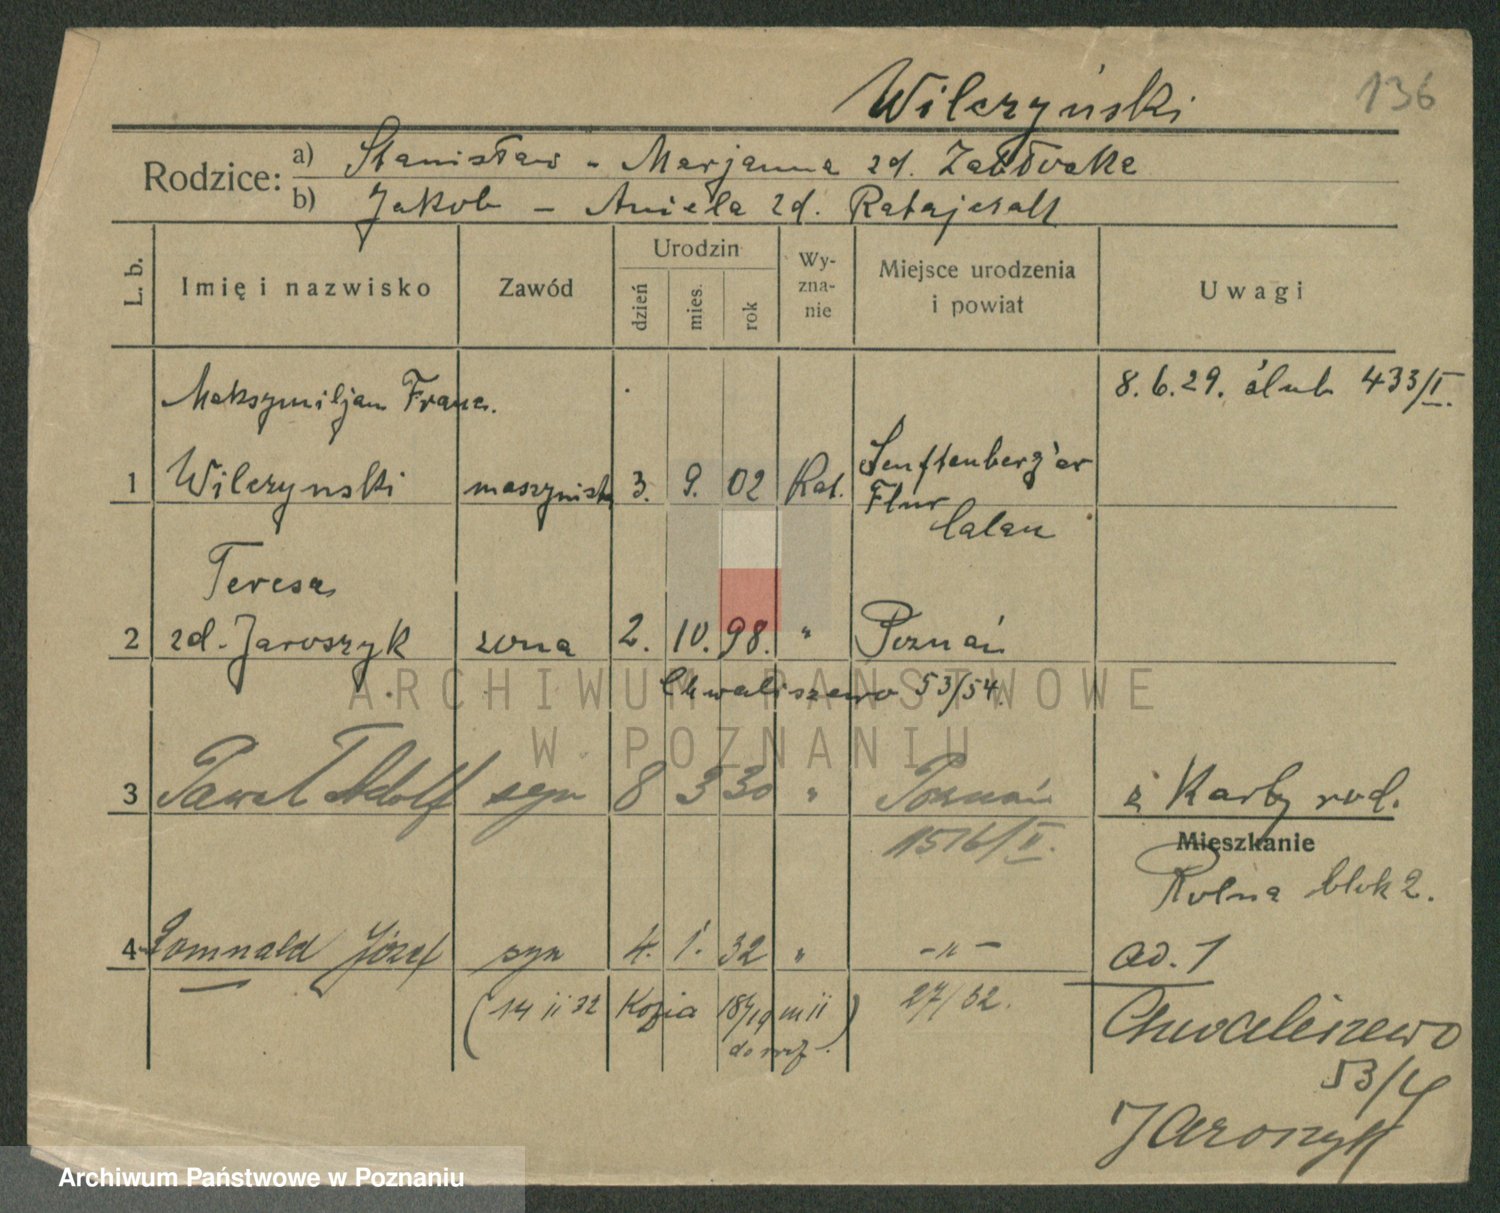 Wilczyński 136
Rodzice: a) Stanisław - Marjanna zd.
b) Jakob - Aniela zd. Ratajczak
L. b. Imię i nazwisko Zawód Urodzin dzień mies. rok Wyznanie Miejsce urodzenia i powiat Uwagi
Maksymiljan Franc. 8.6.29. ślub 433/I.
1 Wilczynski maszynista 3. 9. 02 Kat. Senftenberg'er
Flur
Calau
Teresa
2 zd. Jaroszyk zona 2. 10. 98. " Poznań
Chwaliszewo 53/54.
ARCHIWUM PAŃSTWOWE
W POZNANIU
3 Paweł Adolf syn 8 3 30 " Poznań z Karty rod.
1516/II.
Mieszkanie
Rolna blok 2.
4 Romuald Józef syn 4. 1. 32 " -"- ad. 1
(14 ii 32 Kopia ) 27/32.
Chwaliszewo
53/4
Jaroszyk
Archiwum Państwowe w Poznaniu